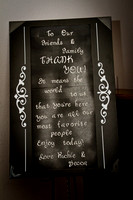 To Our
Friends &
Family
THANK
YOU!
It means the
world to us
that you're here
you are all our
most favorite
people
Enjoy today!
Love Richie &